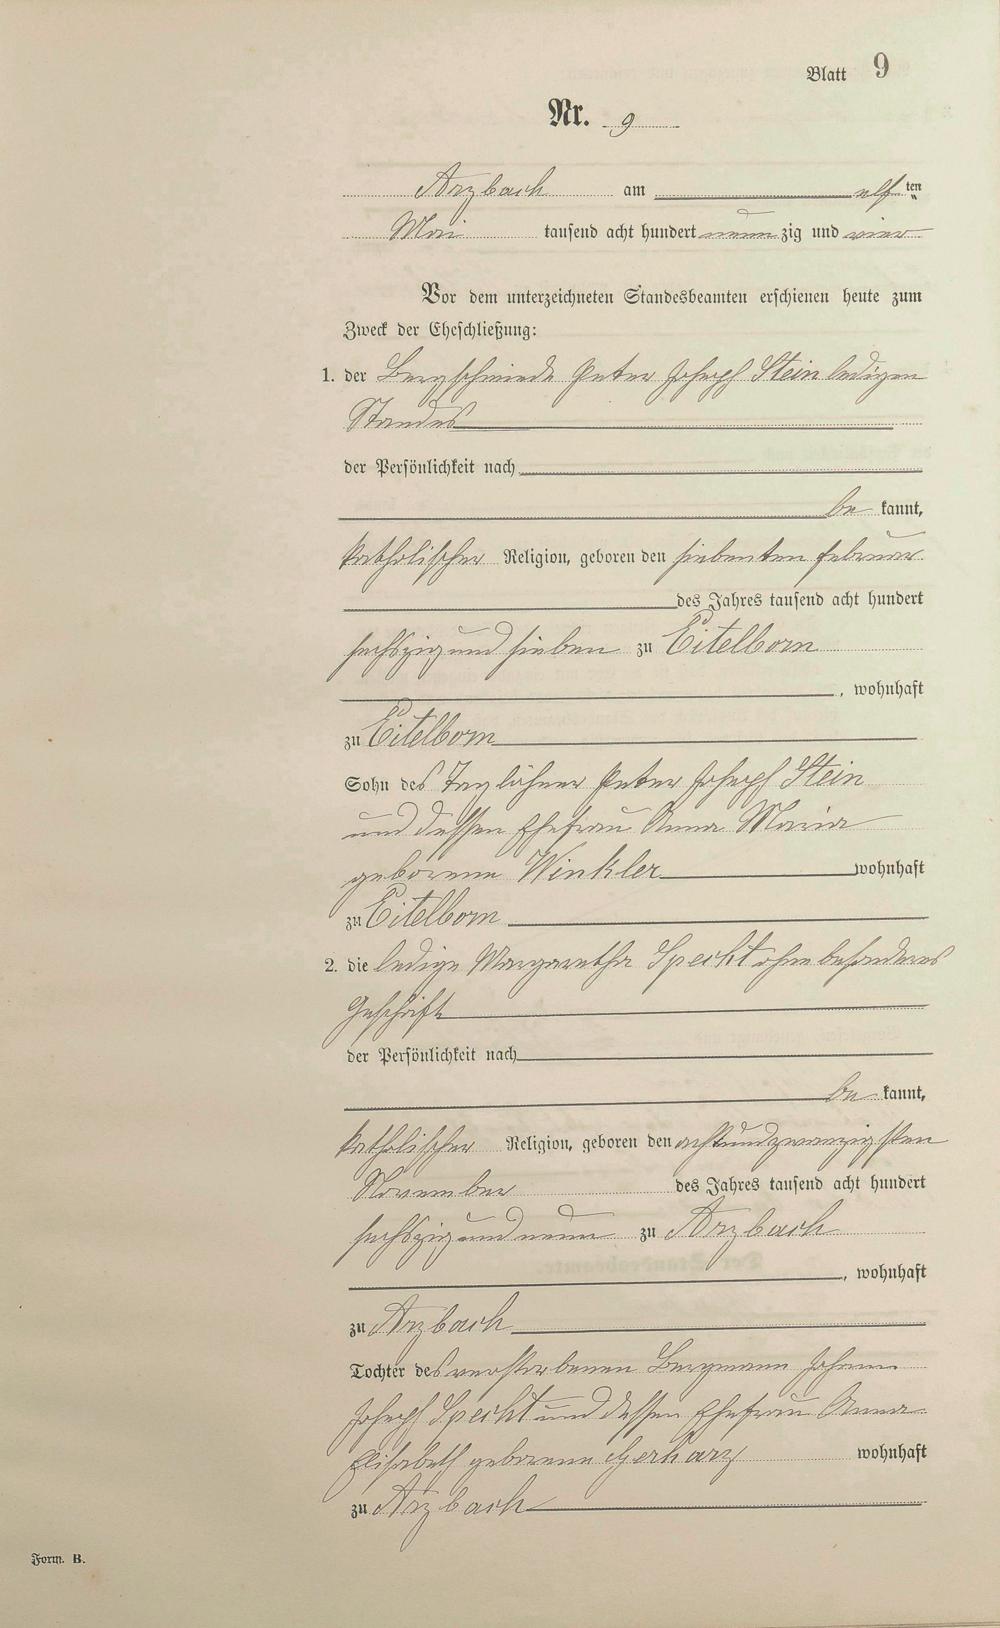 Blatt 9
Nr. 9
Arzbach am elften
Mai tausend acht hundert neunzig und vier
Vor dem unterzeichneten Standesbeamten erschienen heute zum
Zweck der Eheschließung:
1. der Bergschmiede Peter Joseph Stein ledigen
Standes
der Persönlichkeit nach
be kannt,
katholischer Religion, geboren den siebenten Februar
des Jahres tausend acht hundert
sechszig und sieben zu Eitelborn
, wohnhaft
zu Eitelborn
Sohn des Taglöhner Peter Joseph Stein
und dessen Ehefrau Anna Maria
geborene Winkler wohnhaft
zu Eitelborn
2. die ledige Margaretha Specht ohne besonderes
Geschäft
der Persönlichkeit nach
be kannt,
katholischer Religion, geboren den achtundzwanzigsten
November des Jahres tausend acht hundert
sechszig und neun zu Arzbach
, wohnhaft
zu Arzbach
Tochter des verstorbenen Bergmann Johann
Joseph Specht und dessen Ehefrau Anna
Elisabeth geborene Gerharz wohnhaft
zu Arzbach
Form. B.